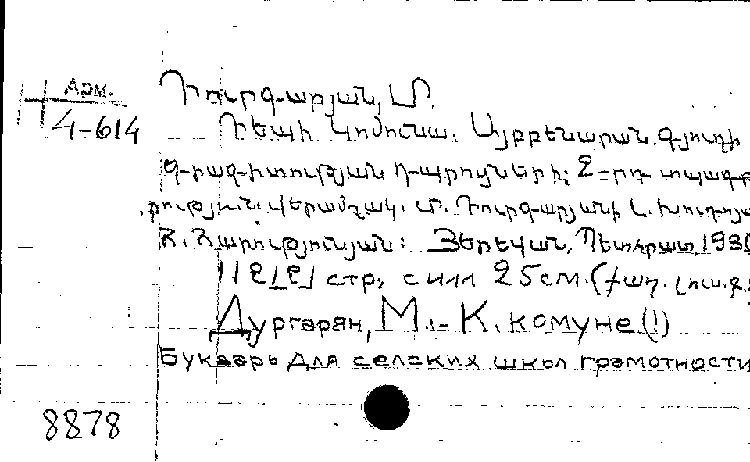 Арм.
4-614
Դուրգարյան, Մ.
Դեպի կոմունա. Այբբենարան գյուղի
գրագիտության դպրոցների: 2-րդ
վերամշակ. Մ. Դուրգարյանի և
Հ. Հարությունյան: Յերեվան, Պետհրատ 1930
стр, с илл 25см.
Дургарян, М.- К. комуне (!)
Букварь для селских школ грамотности
8878